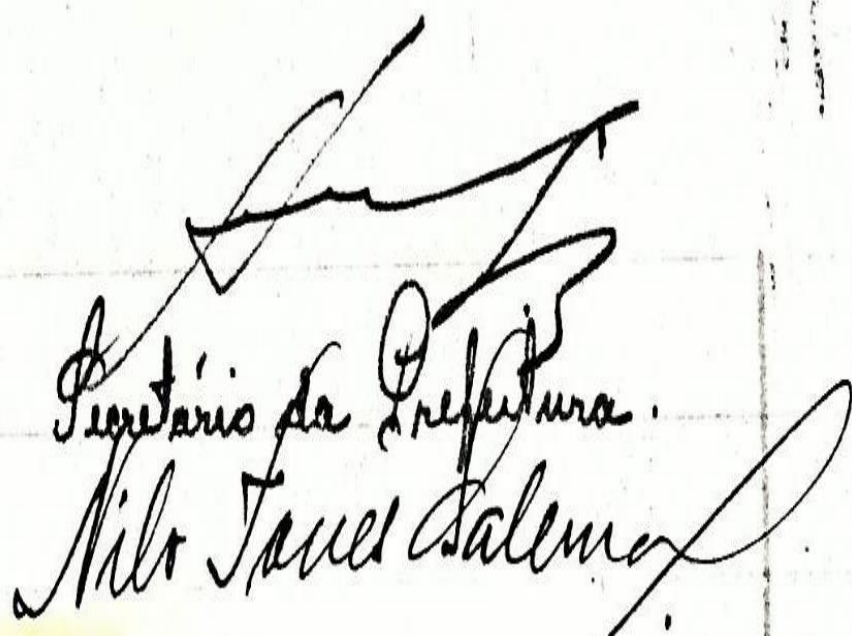 Secretário da Prefeitura.
Nilo Torres Salema